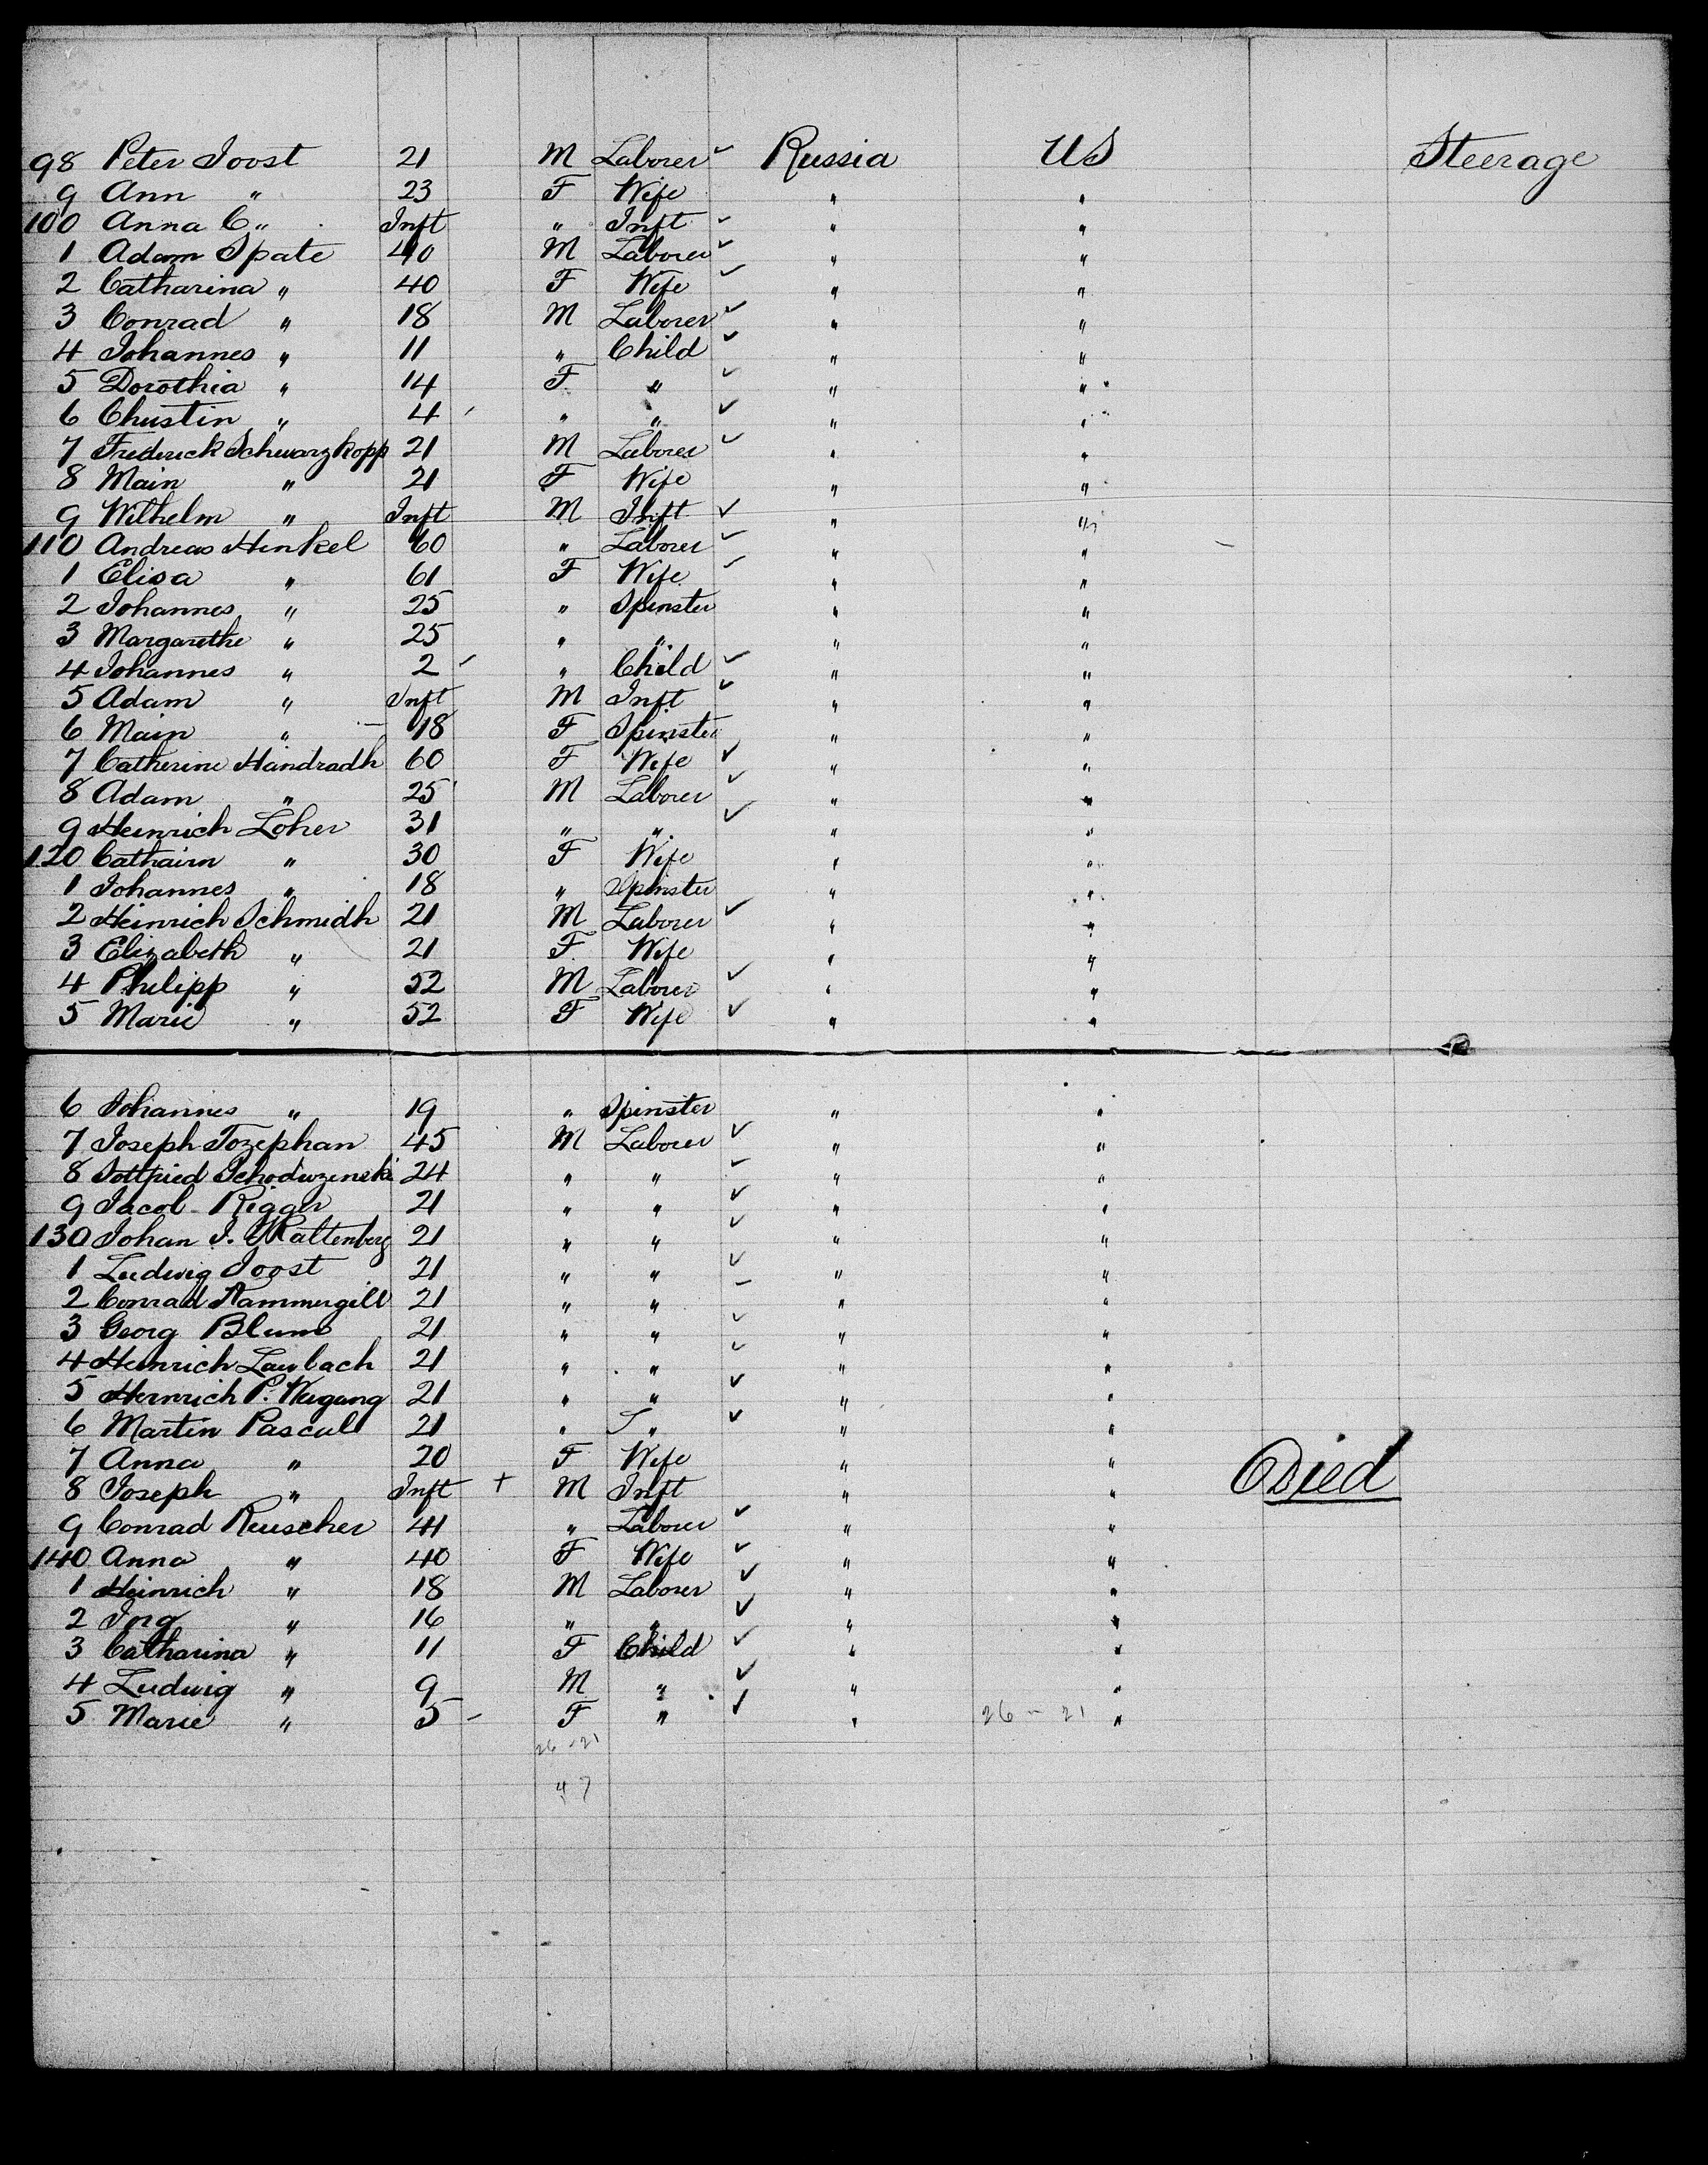 98 Peter Joost 21 M Laborer ✓ Russia US Steerage
9 Ann " 23 F Wife " "
100 Anna C " Inft " Inft ✓ " "
1 Adam Spate 40 M Laborer ✓ " "
2 Catharina " 40 F Wife ✓ " "
3 Conrad " 18 M Laborer ✓ " "
4 Johannes " 11 " Child ✓ " "
5 Dorothia " 14 F " ✓ " "
6 Christin " 4 " " ✓ " "
7 Frederick Schwarzkopp 21 M Laborer ✓ " "
8 Main " 21 F Wife " "
9 Wilhelm " Inft M Inft ✓ " "
110 Andreas Henkel 60 " Laborer ✓ " "
1 Elisa " 61 F Wife ✓ " "
2 Johannes " 25 " Spinster " "
3 Margarethe " 25 " " " "
4 Johannes " 2 ✓ " Child ✓ " "
5 Adam " Inft M Inft ✓ " "
6 Main " 18 F Spinster " "
7 Catherine Handradh 60 F Wife ✓ " "
8 Adam " 25 M Laborer ✓ " "
9 Heinrich Loher 31 " " ✓ " "
120 Cathairn " 30 F Wife " "
1 Johannes " 18 " Spinster " "
2 Heinrich Schmidh 21 M Laborer ✓ " "
3 Elizabeth " 21 F Wife " "
4 Philipp " 52 M Laborer ✓ " "
5 Marie " 52 F Wife ✓ " "
6 Johannes " 19 " Spinster " "
7 Joseph Tozephan 45 M Laborer ✓ " "
8 Gottfried 24 " " ✓ " "
9 Jacob Rigger 21 " " ✓ " "
130 Johan J. Waltenberg 21 " " ✓ " "
1 Ludwig Joost 21 " " ✓ " "
2 Conrad 21 " " - " "
3 Georg Blum 21 " " ✓ " "
4 Heinrich Laubach 21 " " ✓ " "
5 Heinrich P. Weigung 21 " " ✓ " "
6 Martin Pascal 21 " " ✓ " "
7 Anna " 20 F Wife " "
8 Joseph " Inft + M Inft " " Died
9 Conrad Reuscher 41 " Laborer ✓ " "
140 Anna " 40 F Wife ✓ " "
1 Heinrich " 18 M Laborer ✓ " "
2 Jorg " 16 " " ✓ " "
3 Catharina " 11 F Child ✓ " "
4 Ludwig " 9 M " ✓ " "
5 Marie " 5 - F " ✓ " 26 - 21 "
26 - 21
47